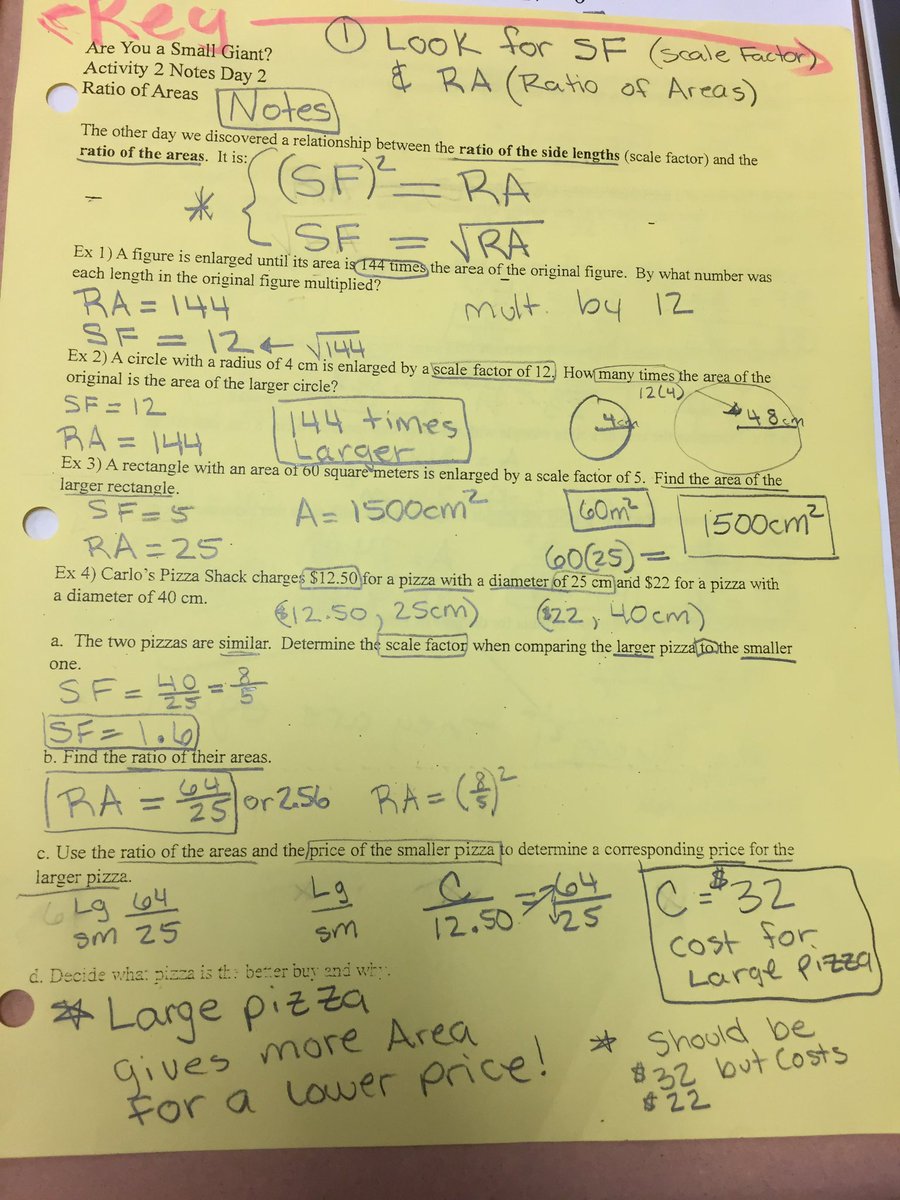 Key
① Look for SF (Scale Factor)
& RA (Ratio of Areas)
Are You a Small Giant?
Activity 2 Notes Day 2
Ratio of Areas
Notes
The other day we discovered a relationship between the ratio of the side lengths (scale factor) and the
ratio of the areas. It is:
* { (SF)² = RA
SF = √RA
Ex 1) A figure is enlarged until its area is 144 times the area of the original figure. By what number was
each length in the original figure multiplied?
RA = 144
mult. by 12
SF = 12 ← √144
Ex 2) A circle with a radius of 4 cm is enlarged by a scale factor of 12. How many times the area of the
original is the area of the larger circle?
12(4)
SF = 12
4cm
48cm
RA = 144
144 times
Larger
Ex 3) A rectangle with an area of 60 square meters is enlarged by a scale factor of 5. Find the area of the
larger rectangle.
SF = 5
A = 1500cm²
60m²
1500cm²
RA = 25
60(25) =
Ex 4) Carlo's Pizza Shack charges $12.50 for a pizza with a diameter of 25 cm and $22 for a pizza with
a diameter of 40 cm.
($12.50, 25cm)
($22, 40cm)
a. The two pizzas are similar. Determine the scale factor when comparing the larger pizza to the smaller
one.
SF = 40/25 = 8/5
SF = 1.6
b. Find the ratio of their areas.
RA = 64/25 or 2.56 RA = (8/5)²
c. Use the ratio of the areas and the price of the smaller pizza to determine a corresponding price for the
larger pizza.
Lg 64
sm 25
Lg
sm
C/12.50 = 64/25
C = $32
cost for
Large pizza
d. Decide what pizza is the better buy and why.
* Large pizza
gives more Area
for a lower price!
* Should be
$32 but costs
$22